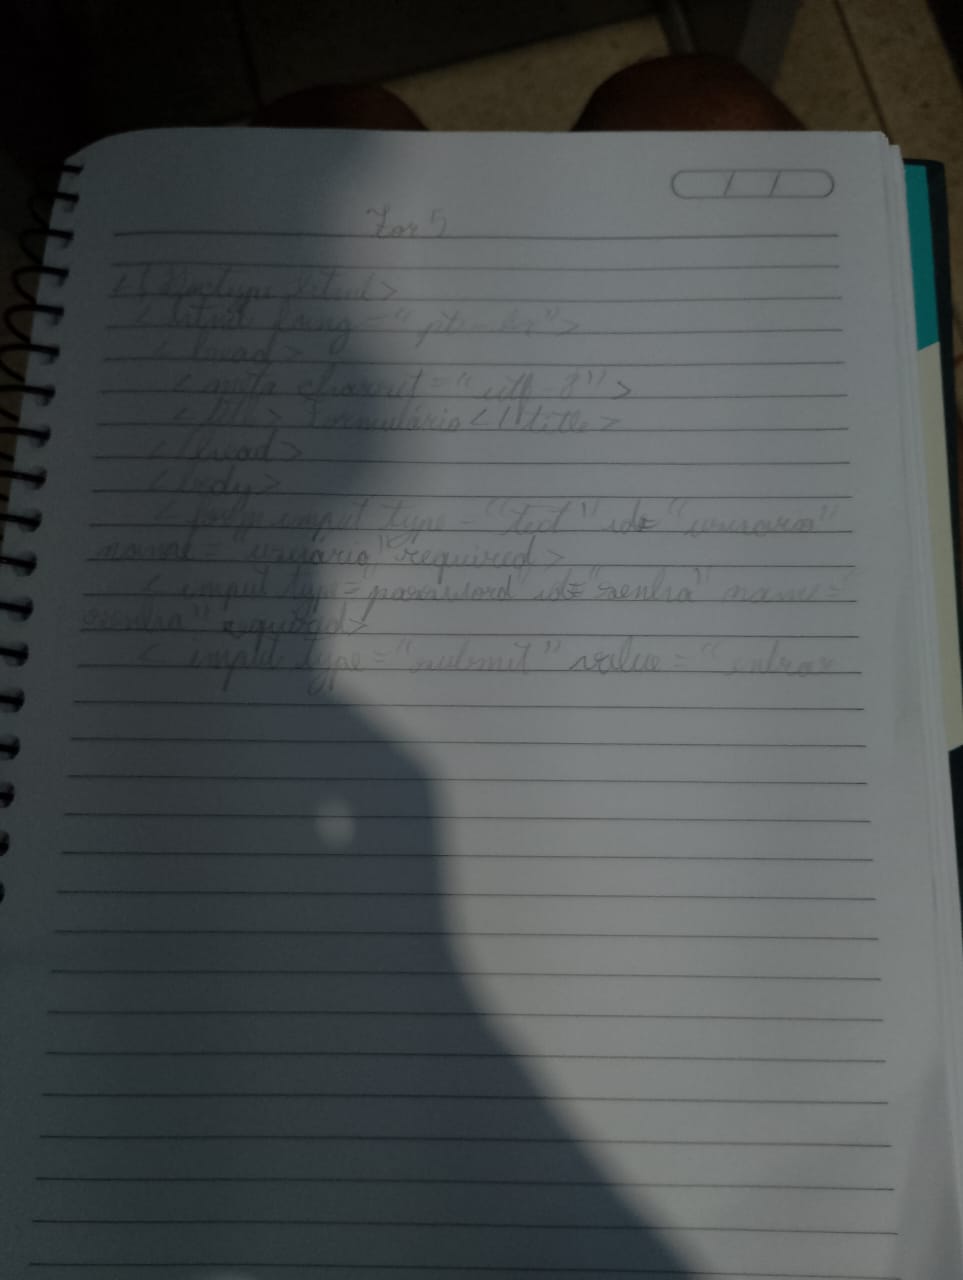 <! Doctype html>
< html lang = " pt-br" >
< head >
< meta charset = "utf-8" >
< title > Formulário < / title >
< / head >
< body >
input type = "text" id= "usuario"
name = usuário" required >
< input type = "password" id= "senha" name =
senha" >
< input type = "submit" value = " entrar